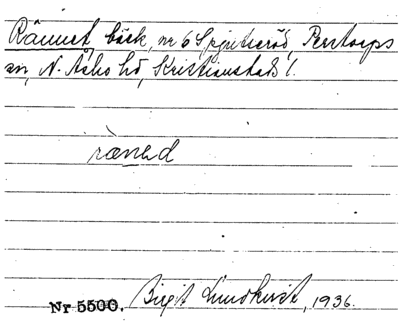 Rännet, bäck, nr 6 Spjutseröd, Perstorps
sn, N. Åsbo hd, Kristianstads l.
rænəd
Nr 5500. Birgit Lundkvist, 1936.